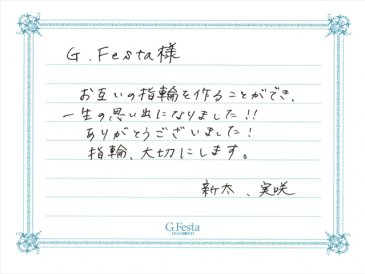 G.Festa様
お互いの指輪を作ることができ、
一生の思い出になりました!!
ありがとうございました!
指輪、大切にします。
新太、実咲
G.Festa